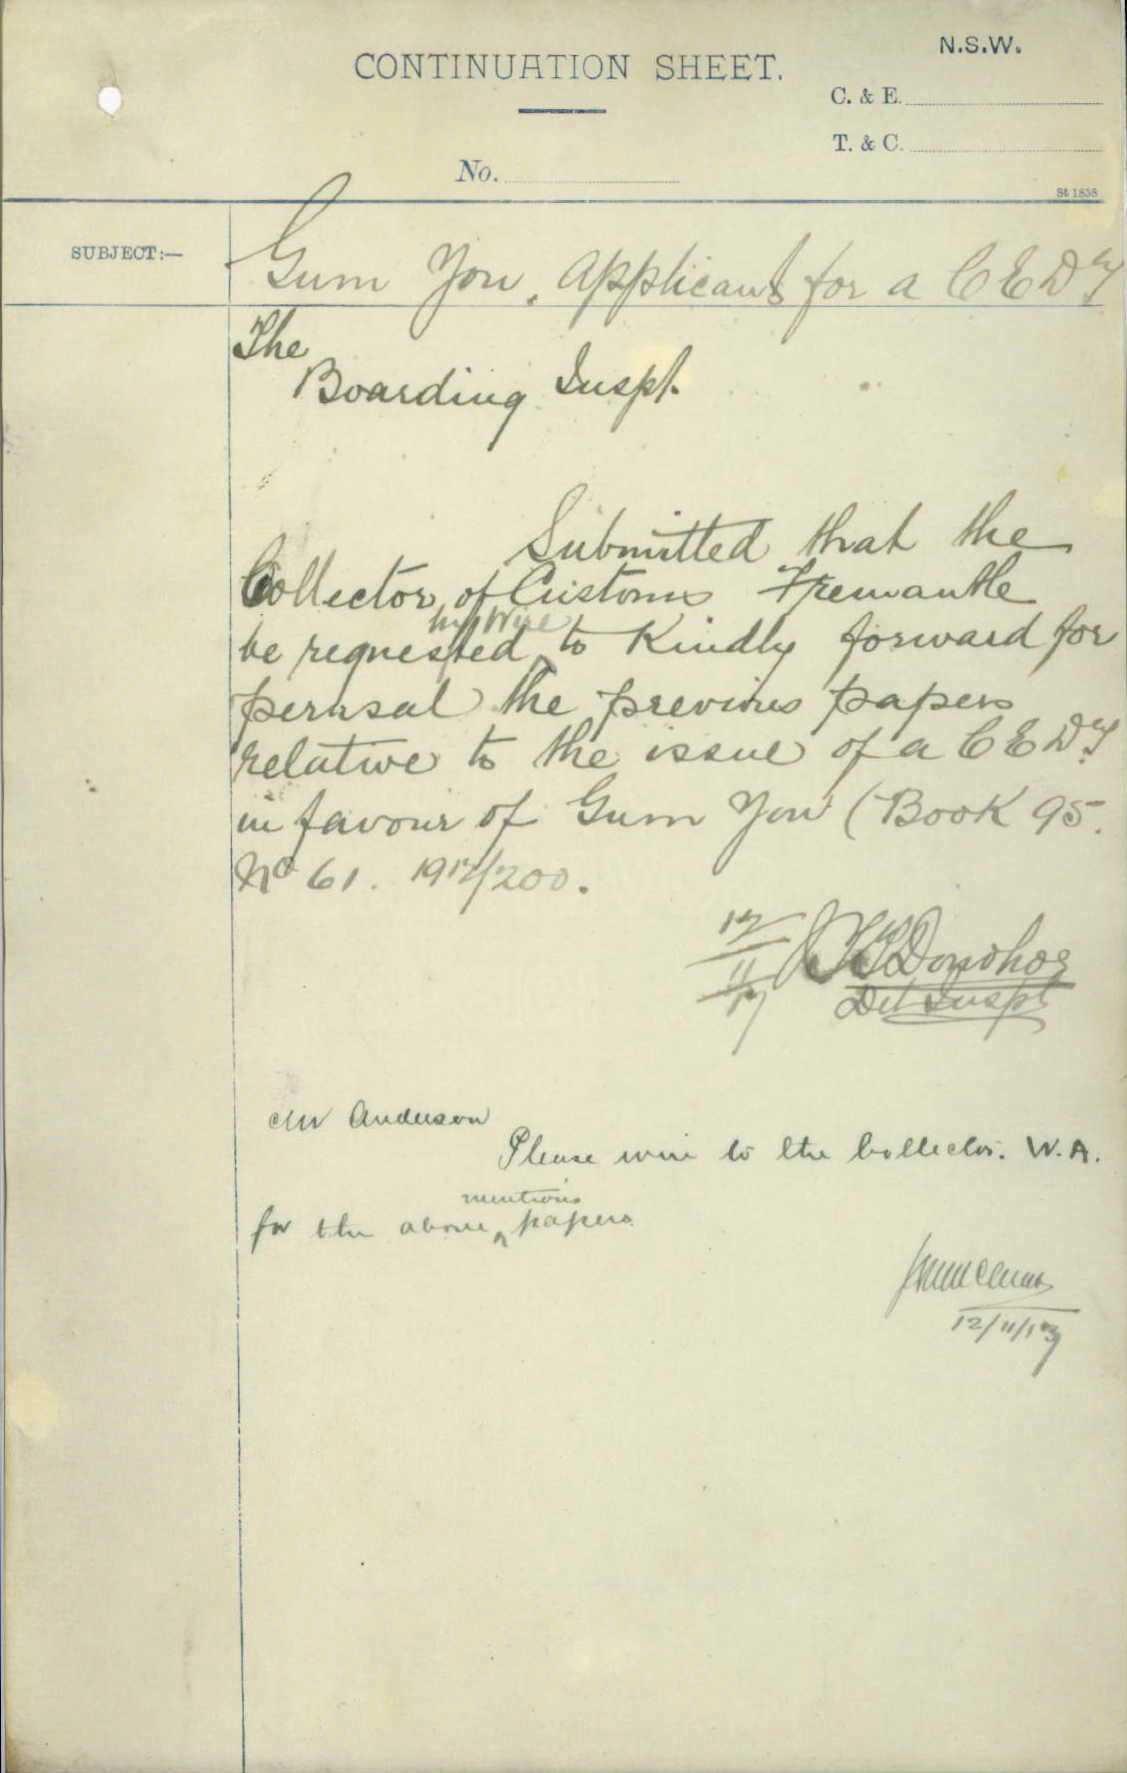 N.S.W.
CONTINUATION SHEET.
C. & E.
T. & C.
No.
St 1838
SUBJECT:—
Gum You. Applicant for a C E D. T
The
Boarding Inspt.
Submitted that the
Collector of Customs Fremantle
by Wire
be requested to Kindly forward for
perusal the previous papers
relative to the issue of a C E D. T
in favour of Gum You (Book 95.
No 61. 1912/200.
12
11
17
Donohoe
Det Inspt
Mr Anderson
Please wire to the Collector. W.A.
mentions
for the above papers
12/11/17